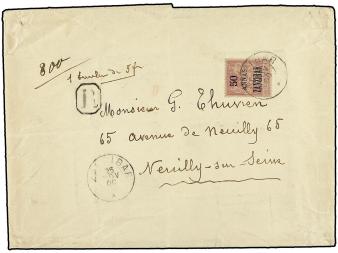 800
1 timbre de 5 fr
R
50
ANNAS
ZANZIBAR
Monsieur G. Thuvien
65 avenue de Neuilly 65
Neuilly-sur-Seine